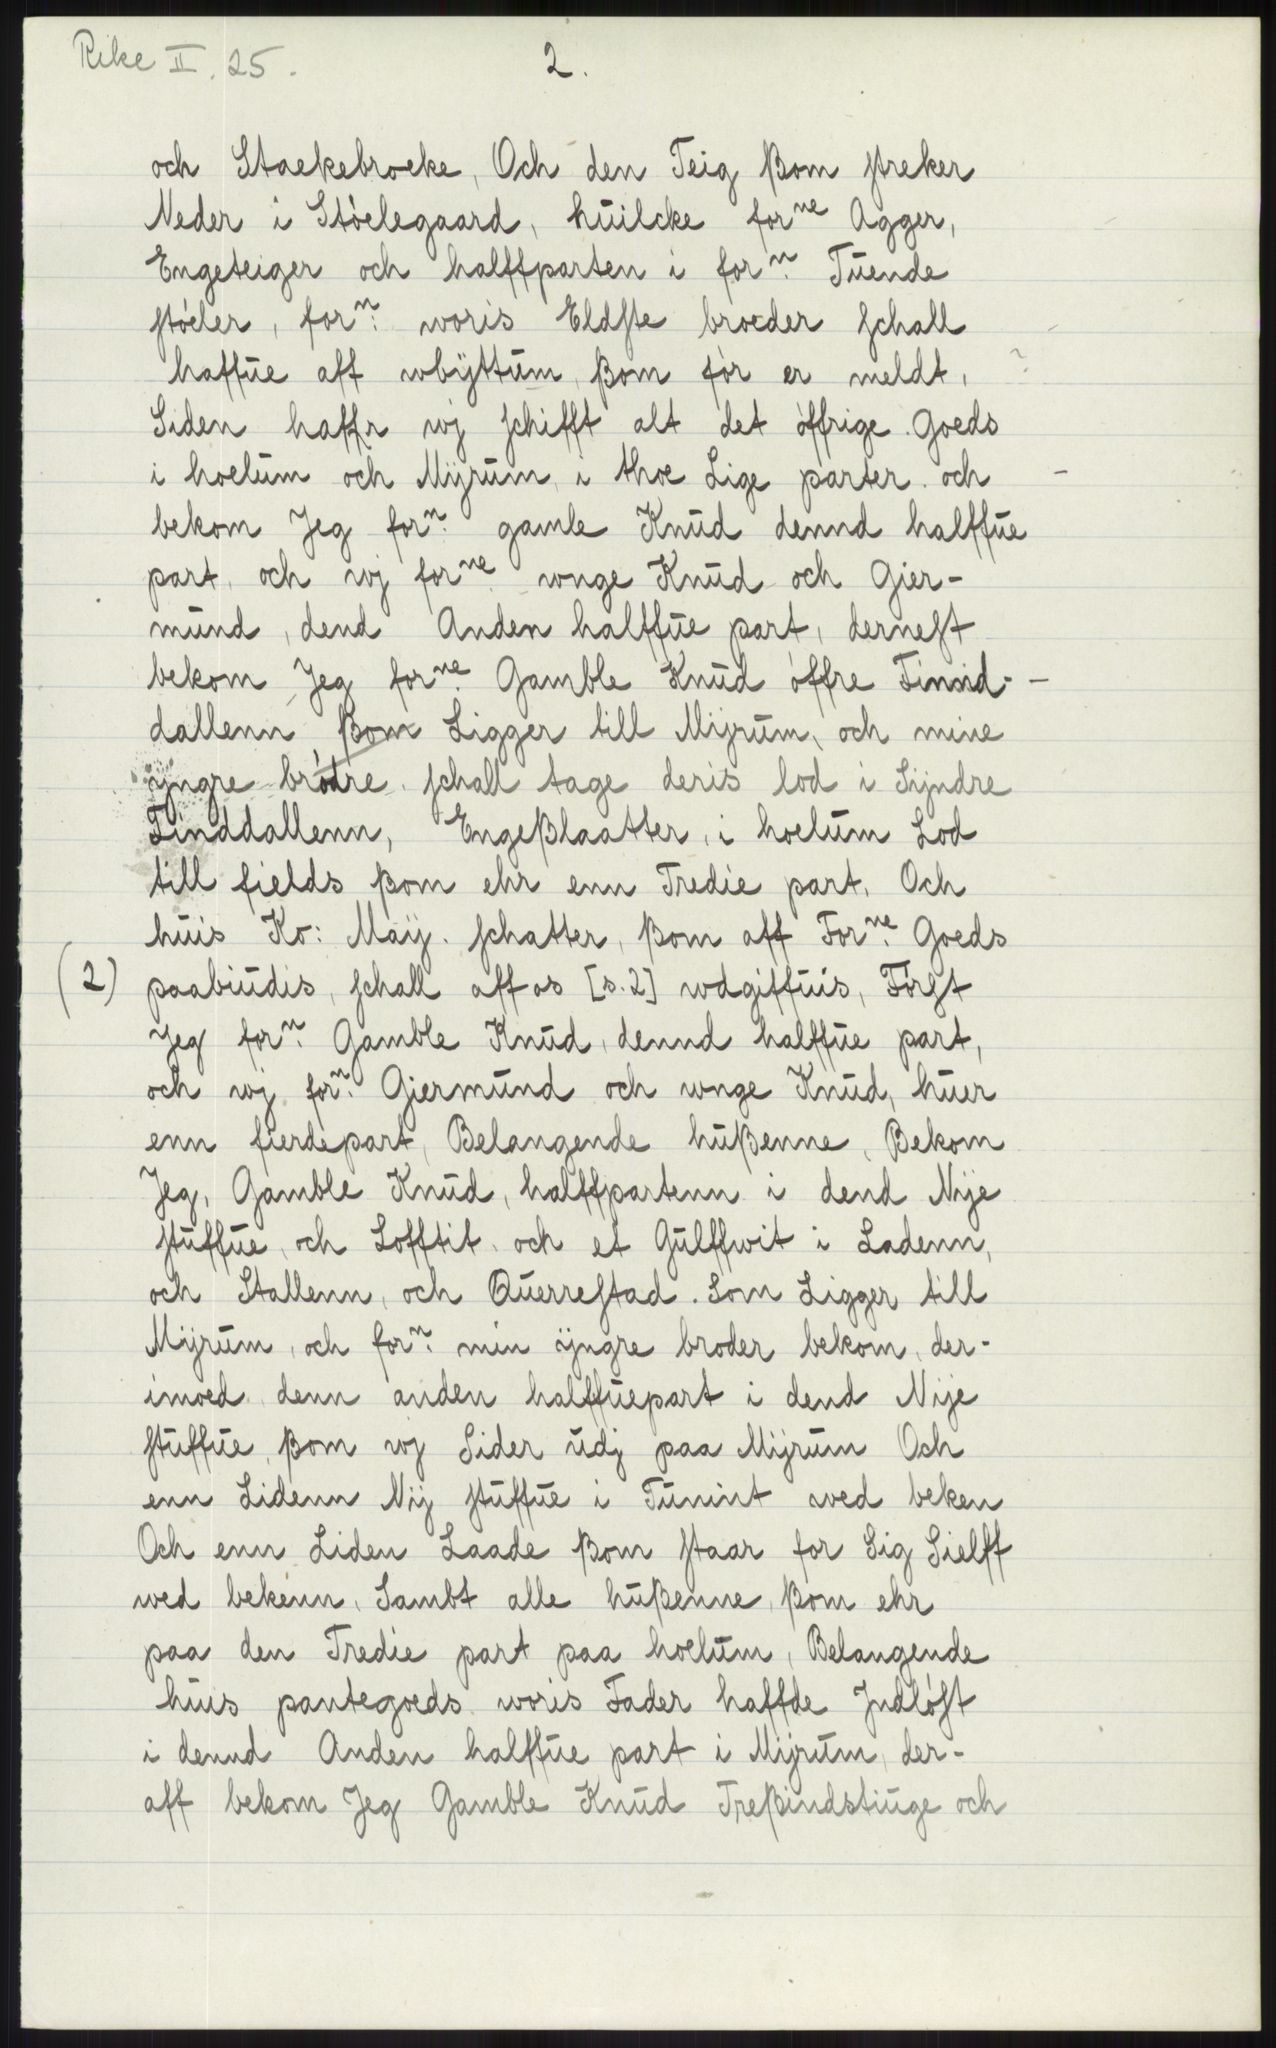 Rike II. 25.
2.
och Stackebrocke, Och den Teig ßom streker
Neder i Stóelegaard, huilcke forne Agger,
Engeteiger och halffparten i forn: Tuende
stóeler, forn: woris Eldste broeder schall
haffue aff wbÿttum, ßom fór er meldt,
Siden haffr wj schifft alt det óffrige Goeds
i hoelum och Mÿrum, i thoe Lige parter. och
bekom Jeg forn: gamle Knud dennd halffue
part, och wj forne wnge Knud och Gier-
mund, dend Anden halffue part, dernest
bekom Jeg forne: Gamble Knud óffre Finnd-
dallenn ßom Ligger till Mÿrum, och mine
ÿngre bródre, schall tage deris lod i Sÿndre
Finddallenn, Engeßlaatter, i hoelum Lod
till fields ßom ehr enn Tredie part. Och
huis Ko: Maÿ. schatter, ßom aff Forne: Goeds
(2) paabiudis, schall aff os [s. 2] wdgiffuis, Fórst
Jeg forn: Gamble Knud, dennd halffue part,
och wj forn: Giermund och wnge Knud, huer
enn fierdepart, Belangende hußenne, Bekom
Jeg, Gamble Knud, halffpartenn i dend Nÿe
stuffue, och Lofftit, och et Gulffwit i Ladenn,
och Stallenn, och Querrestad. Som Ligger till
Mÿrum, och forn: min ÿngre broder bekom, der-
imoed denn anden halffuepart i dend Nÿe
stuffue, ßom wj Sider udj paa Mÿrum Och
enn Lidenn Nÿ stuffue i Tunint wed beken
Och enn Liden Laade ßom staar for Sig Sielff
wed bekenn, Sambt alle hußenne, ßom ehr
paa den Tredie part paa hoelum, Belangende
huis pantegoeds woris Fader haffde Jndlóst
i dennd Anden halffue part i Mÿrum, der-
aff bekom Jeg Gamble Knud Treßindstiuge och